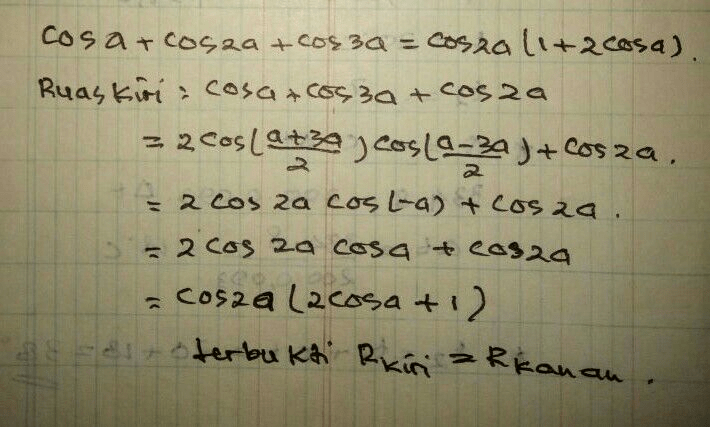 cos a + cos 2a + cos 3a = cos 2a (1 + 2 cos a).
Ruas kiri : cos a + cos 3a + cos 2a
= 2 cos ( (a+3a)/2 ) cos ( (a-3a)/2 ) + cos 2a .
= 2 cos 2a cos (-a) + cos 2a .
= 2 cos 2a cos a + cos 2a
= cos 2a ( 2 cos a + 1 )
terbukti Rkiri = Rkanan .